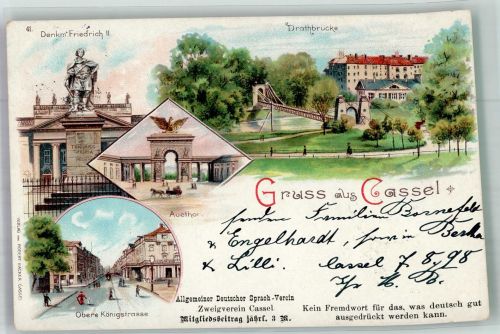 41.
Denkm. Friedrich II.
Drathbrücke
Auethor
Gruss aus Cassel
senden Familien Bornefeld
& Engelhardt, sowie Bertha
& Lilli. Cassel 7/8.98
Obere Königstrasse
Allgemeiner Deutscher Sprach-Verein
Zweigverein Cassel
Mitgliedsbeitrag jährl. 3 M.
Kein Fremdwort für das, was deutsch gut
ausgedrückt werden kann.